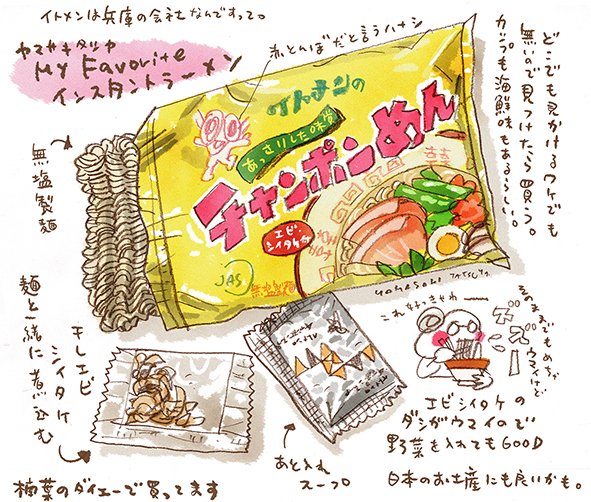 イトメンは兵庫の会社なんですって。
ヤマサキタツヤ
My Favorite
インスタントラーメン
赤とんぼだと言うハナシ
どこでも見かけるワケでも
無いので見つけたら買う。
カップも海鮮味もあるらしい。
イトメンの
あっさりした味覚
チャンポンめん
エビ
シイタケ
JAS
無塩製麺
yamasaki タツヤ
無塩製麺
干しエビ
シイタケ
麺と一緒に煮込む
楠葉のダイエーで買ってます
あと入れ
スープ
これ好っきゃわ
ズズー
そのままでもめちゃ
ウマいけど
エビシイタケの
ダシがウマイので
野菜を入れてもGOOD
日本のお土産にも良いかも。